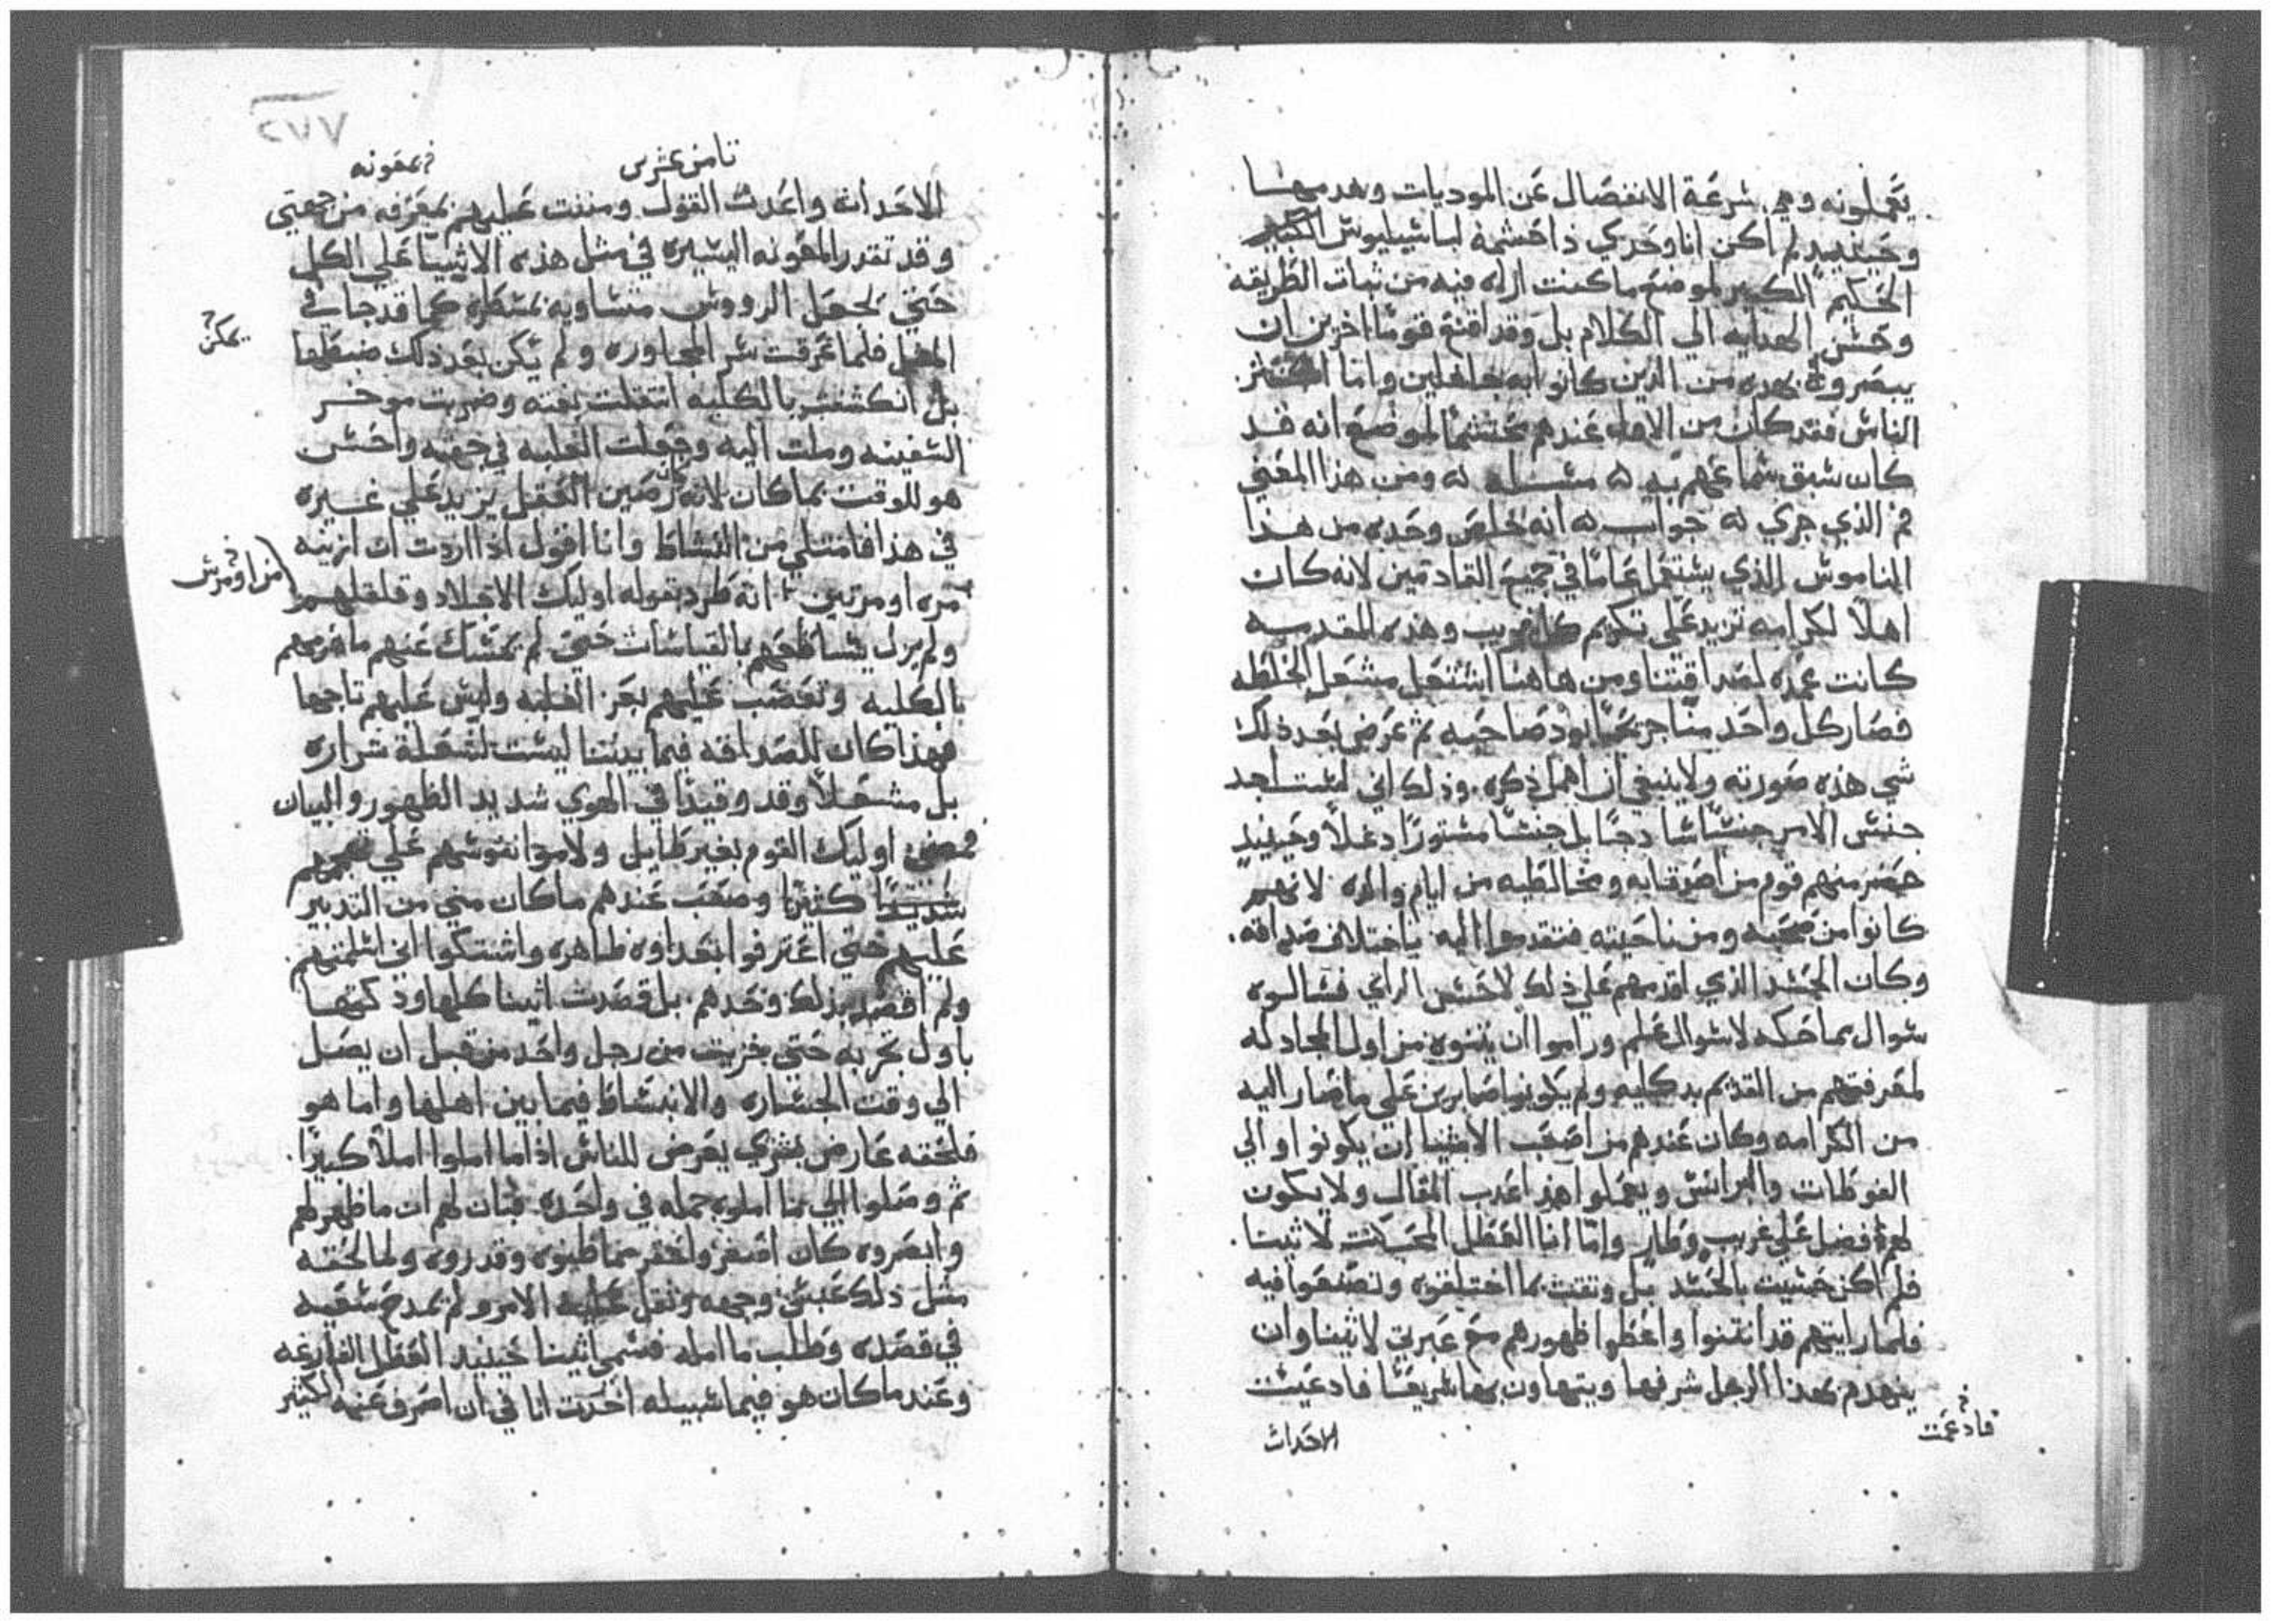 يعملونه وهي سرعة الانفصال عن الموديات وهدمها
وحينيذ لم اكن انا وحدي ذا حشمة لباسيليوس الكبير
الحكيم الكبير لموضع ما كنت اراه فيه من ثبات الطريقه
وحسن الهدايه الي الكلام بل وقد اقنع قوما اخرين ان
يبصروه بهذه من الذين كانوا به جاهلين واما اكثر
الناس فقد كان من الاول عندهم محتشما لموضع انه قد
كان سبق سماعهم به ۞ مسله ۞ ومن هذا المعني
ثم الذي جري له جواب ۞ انه خلص وحده من هذا
الناموس الذي يستعمل عاما في جميع القادمين لانه كان
اهلا لكرامه تزيد علي تكريم كل غريب وهذه المقدمه
كانت عمده لصداقتنا ومن هاهنا اشتعل مشعل الخلطه
فصار كل واحد منا جريحا بود صاحبه ثم عرض بعد ذلك
شي هذه صورته ولا ينبغي ان اهمل ذكره وذلك اني لست اجد
جنس الارمن جنسا ساذجا بل جنسا مستورا دغلا وحينيذ
حضر منهم قوم من اصدقايه ومخالطيه من ايام والده لانهم
كانوا من صحبه ومن ناحيته فتقدموا اليه باختلاف صداقه
وكان الحسد الذي اقدمهم علي ذلك لا حسن الراي فسالوه
سوال مماحكه لا سوال علم وراموا ان يتنوه من اول المجادله
لمعرفتهم من القديم بدكايه ولم يكونوا صابرين علي ما صار اليه
من الكرامه وكان عندهم من اصعب الاشيا ان يكونوا اوالي
الفوطات والبرانس ويعملوا هذا عدب المقال ولا يكون
لهم فضل علي غريب وطار واما انا العطل المحب كنت لاثينا
فلم اكن حسيت بالحسد بل وثقت بما اختلقوه وتصنعوا فيه
فلما رايتهم قد انثنوا واعطوا ظهورهم مع غيرتي لاثينا وان
ينهدم بهذا الرجل شرفها ويتهاون بها سريعا فادعيت
فادعمت
الاحداث
ثامن عشرين
معونه
الاحداث واعدت القول ومننت عليهم بمعرفه من جهتي
وقد تقدر المعونه اليسيره في مثل هذه الاشيا علي الكل
حتي تجعل الرووس متساويه بمسطره كما قد جا في
المثل فلما عرفت سر المجاوره ولم يكن بعد ذلك ضبطها
يمكن
بل انكشفت بالكليه انتقلت بغته وضربت موخر
السفينه وملت اليه وجعلت الغلبه في جهته واحسن
هو للوقت بما كان لانه رصين العقل يزيد علي غيره
في هذا فامتلي من النشاط وانا اقول اذا اردت ان ازينه
مره او مرتين انه طرد بقوله اوليك الاجلاد وقلقلهم
ولم يزل يساطحهم بالقياسات حتي لم يمسك عنهم ما هزمهم
بالكليه وتعصب عليهم بعز الغلبه ولبس عليهم تاجها
فهذا كان للصداقه فيما بيننا ليست لشعلة شراره
بل مشعلا وقد وقيدا في الهوي شديد الظهور والبيان
فمضي اوليك القوم بغير طايل ولاموا نفوسهم علي تهجمهم
شديدا كثيرا وصعب عندهم ما كان مني من التدبير
عليهم حتي اعترفوا بعداوه ظاهره واشتكوا اني اسلمتهم
ولم اقصد بذلك وحدهم بل قصدت اثينا كلها وذكتها
باول تجربه حتي خزيت من رجل واحد من قبل ان يصل
الي وقت الجساره والانبساط فيما بين اهلها واما هو
فلحقه عارض بشري يعرض للناس اذا ما املوا املا كبيرا
ثم وصلوا الي ما املوه جمله في واحده فبان لهم ان ما ظهر لهم
وابصروه كان اصغر واحقر مما ظنوه وقدروه ولما لحقه
مثل ذلك عبس وجهه وثقل عليه الامر ولم يمدح سعيه
في قصده وطلب ما امله فسمي اثينا حينيذ العطل الفارغه
وعند ما كان هو فيما سبيله اخدت انا في ان اصرف عنه الكثير